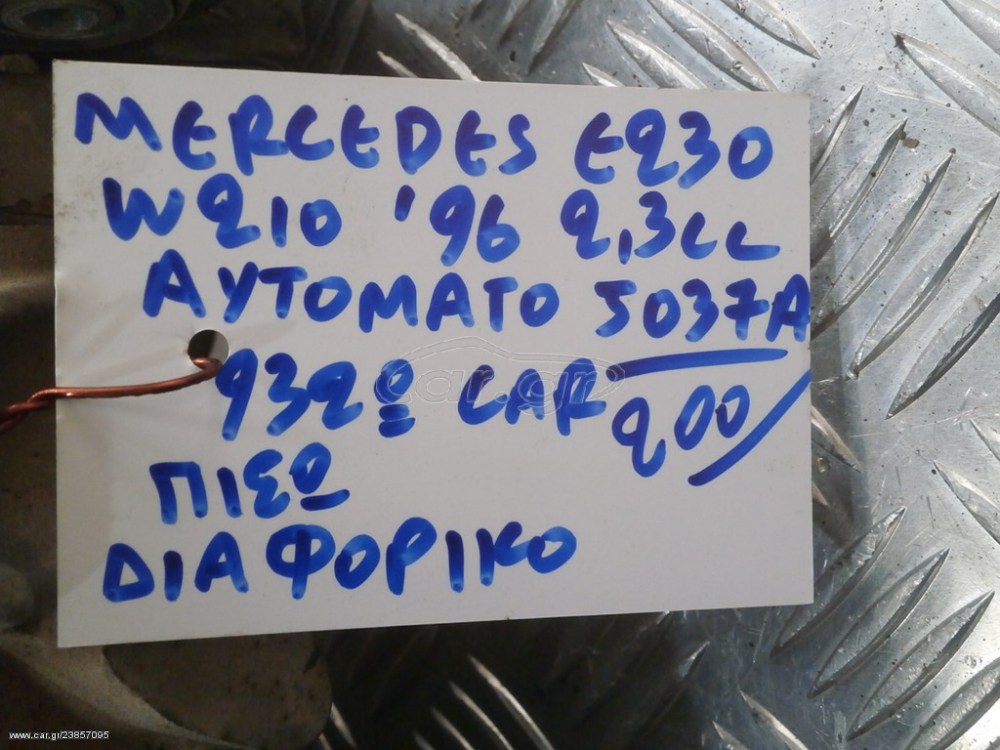 MERCEDES E230
W210 '96 2,3cc
ΑΥΤΟΜΑΤΟ 5037Α
932º CAR 200/
ΠΙΣΩ
ΔΙΑΦΟΡΙΚΟ
car.gr
www.car.gr/23857095